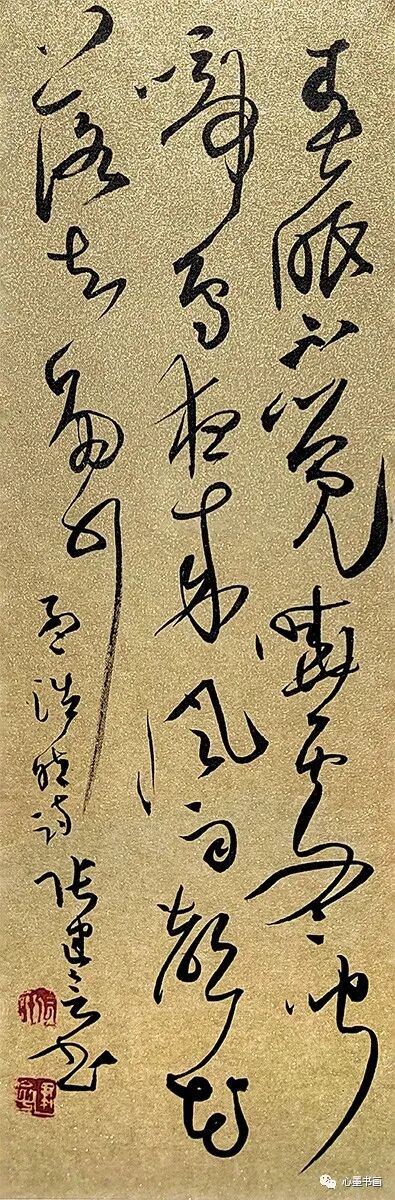 春眠不覺曉處處闻
啼鸟夜来风雨声花
落知多少
孟浩然诗 张建书
心墨书画